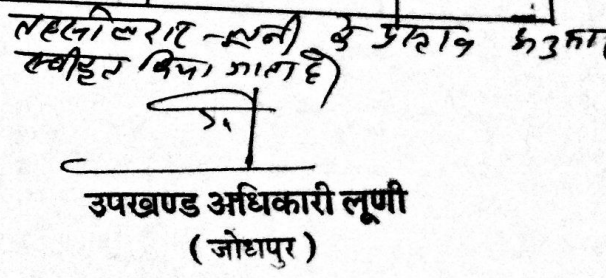 तहसीलदार लूनी के प्रस्ताव
स्वीकृत किया जाता है
उपखण्ड अधिकारी लूणी
( जोधपुर )